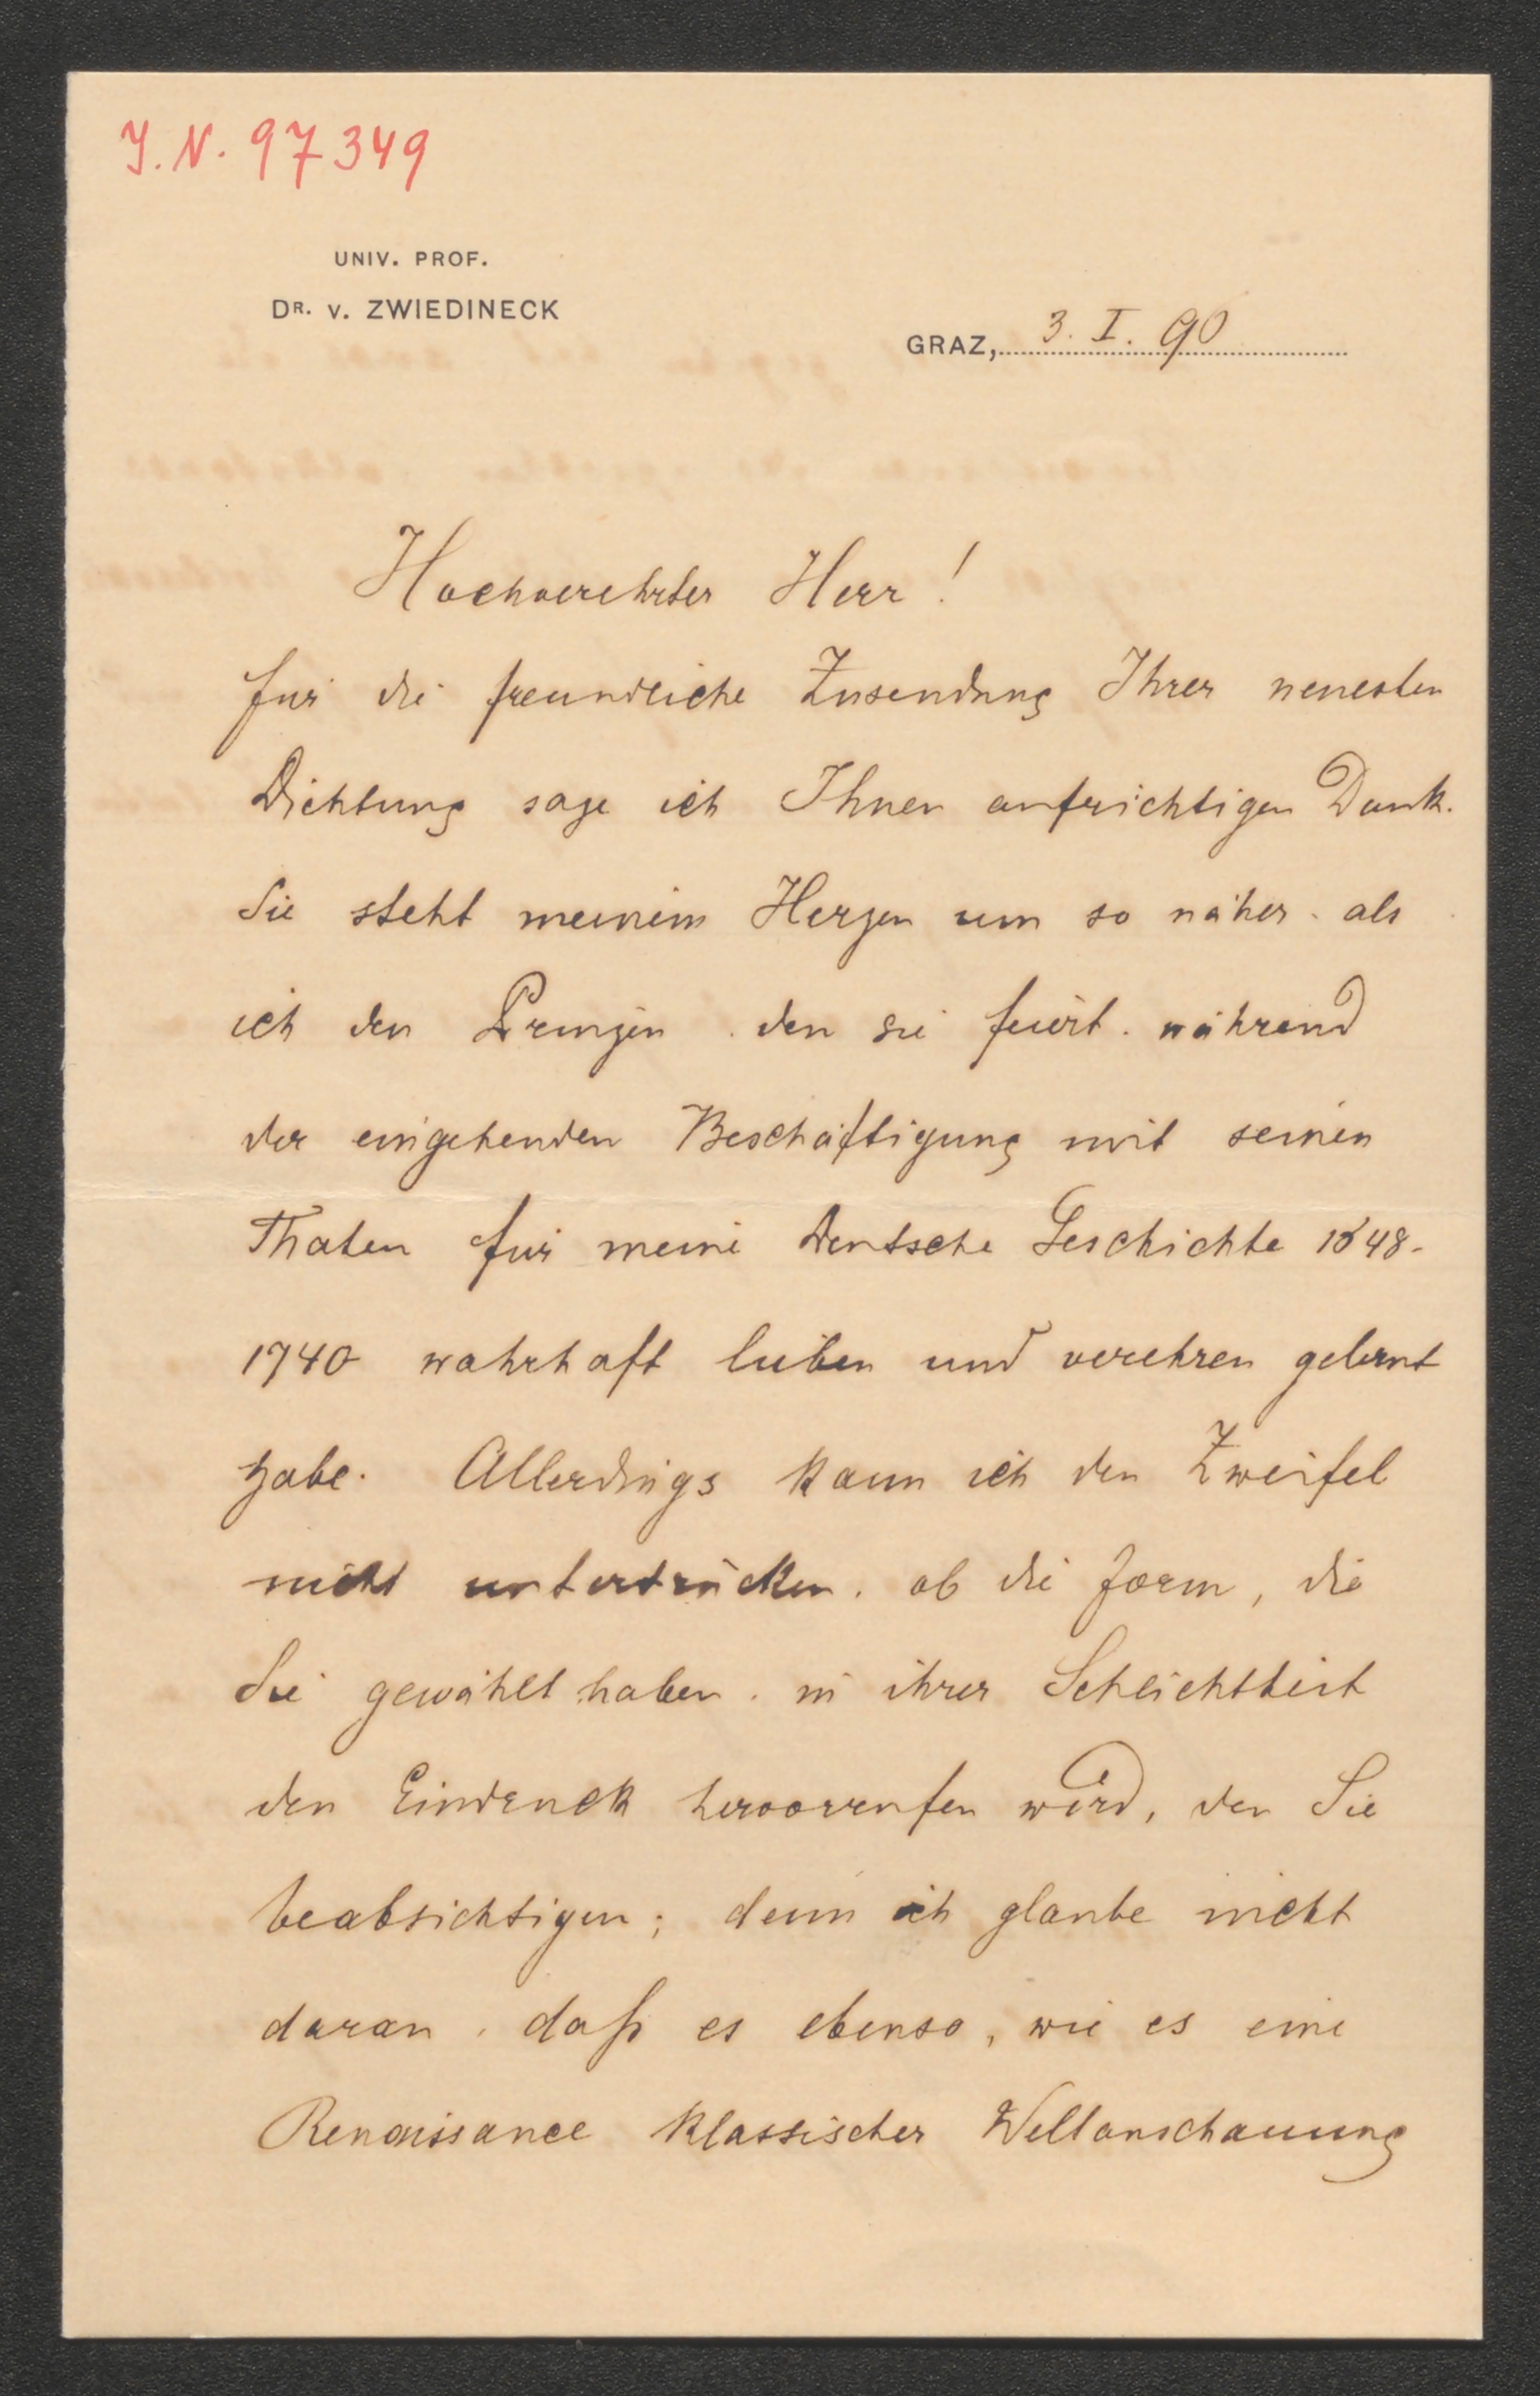 J. N. 97349
UNIV. PROF.
DR. V. ZWIEDINECK
GRAZ, 3. I. 90
Hochverehrter Herr!
für die freundliche Zusendung Ihrer neuesten
Dichtung sage ich Ihnen aufrichtigen Dank.
Sie steht meinem Herzen um so näher, als
ich den Prinzen, den sie feiert, während
der eingehenden Beschäftigung mit seinen
Thaten für meine Deutsche Geschichte 1648-
1740 wahrhaft lieben und verehren gelernt
habe. Allerdings kann ich den Zweifel
nicht unterdrücken, ob die Form, die
Sie gewählt haben, in ihrer Schlichtheit
den Eindruck hervorrufen wird, den Sie
beabsichtigen; denn ich glaube nicht
daran, daß es ebenso, wie es eine
Renaissance klassischer Weltanschauung